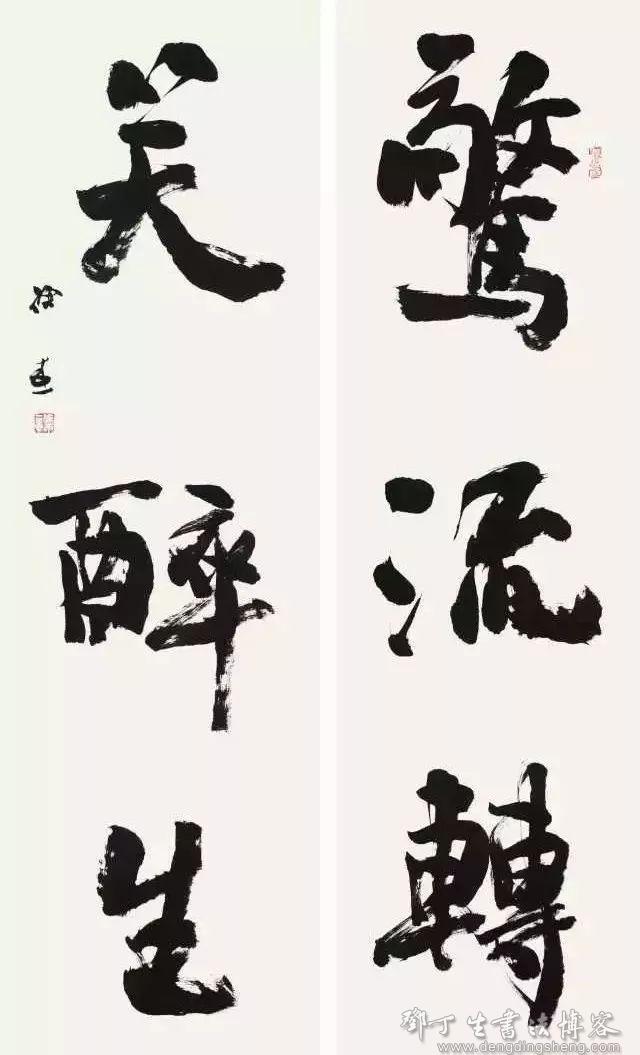 驚流轉
笑醉生
徐
鄧丁生書法博客
www.dengdingsheng.com